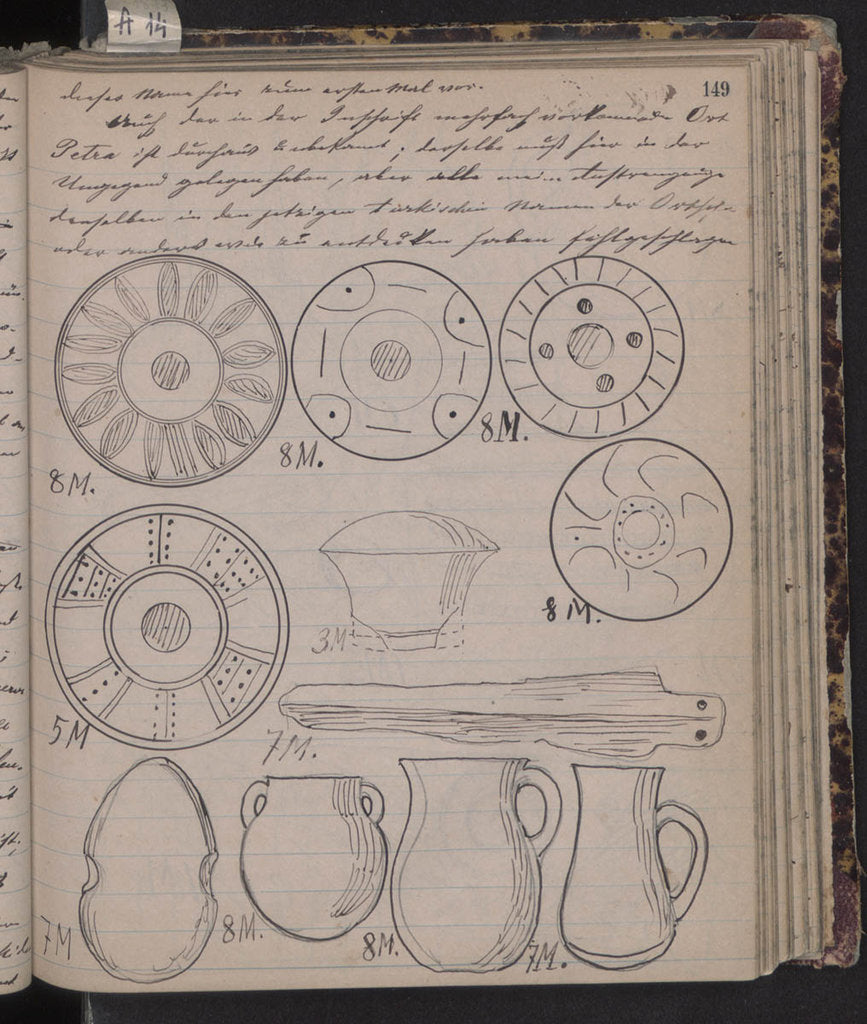 A 14
149
dieser Name hier zum ersten Mal vor.
Auch der in der Inschrift mehrfach vorkommende Ort
Petra ist durchaus unbekannt; derselbe muß hier in der
Umgegend gelegen haben, aber alle meine Anstrengungen
denselben in den jetzigen türkischen Namen der
oder anders wie zu entdecken haben fehlgeschlagen
8 M.
8 M.
8 M.
8 M.
5 M
3 M
7 M.
7 M
8 M.
8 M.
7 M.